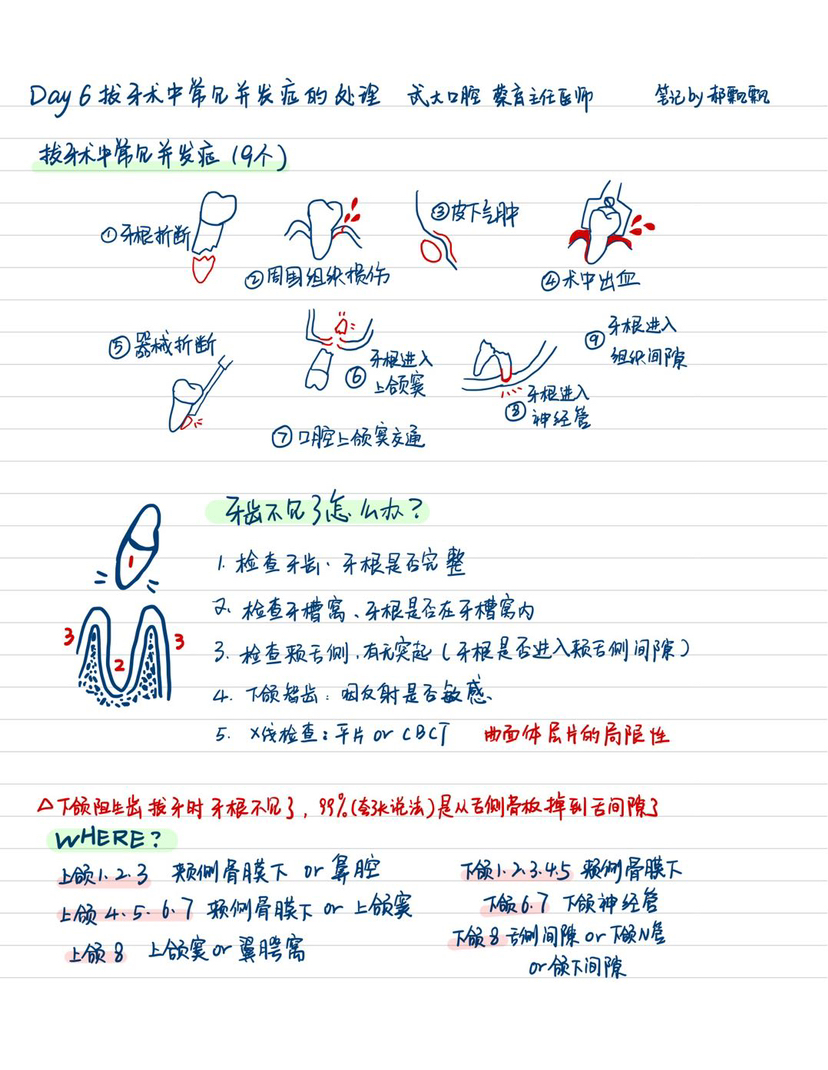 Day 6 拔牙术中常见并发症的处理 武大口腔 蔡育主任医师 笔记by郝飘飘
拔牙术中常见并发症（9个）
①牙根折断
②周围组织损伤
③皮下气肿
④术中出血
⑤器械折断
⑥牙根进入
上颌窦
⑦口腔上颌窦交通
⑧牙根进入
神经管
⑨牙根进入
组织间隙
牙齿不见了怎么办？
1. 检查牙齿、牙根是否完整
2. 检查牙槽窝、牙根是否在牙槽窝内
3. 检查颊舌侧，有无突起（牙根是否进入颊舌侧间隙）
4. 下颌智齿：咽反射是否敏感、
5. X线检查：平片 or CBCT 曲面体层片的局限性
1
3 2 3
△下颌阻生齿拔牙时牙根不见了，99%(夸张说法)是从舌侧骨板掉到舌间隙了
WHERE?
上颌1.2.3 颊侧骨膜下 or 鼻腔
上颌4.5.6.7 颊侧骨膜下 or 上颌窦
上颌8 上颌窦or翼腭窝
下颌1.2.3.4.5 颊侧骨膜下
下颌6.7 下颌神经管
下颌8 舌侧间隙 or 下颌N管
or颌下间隙